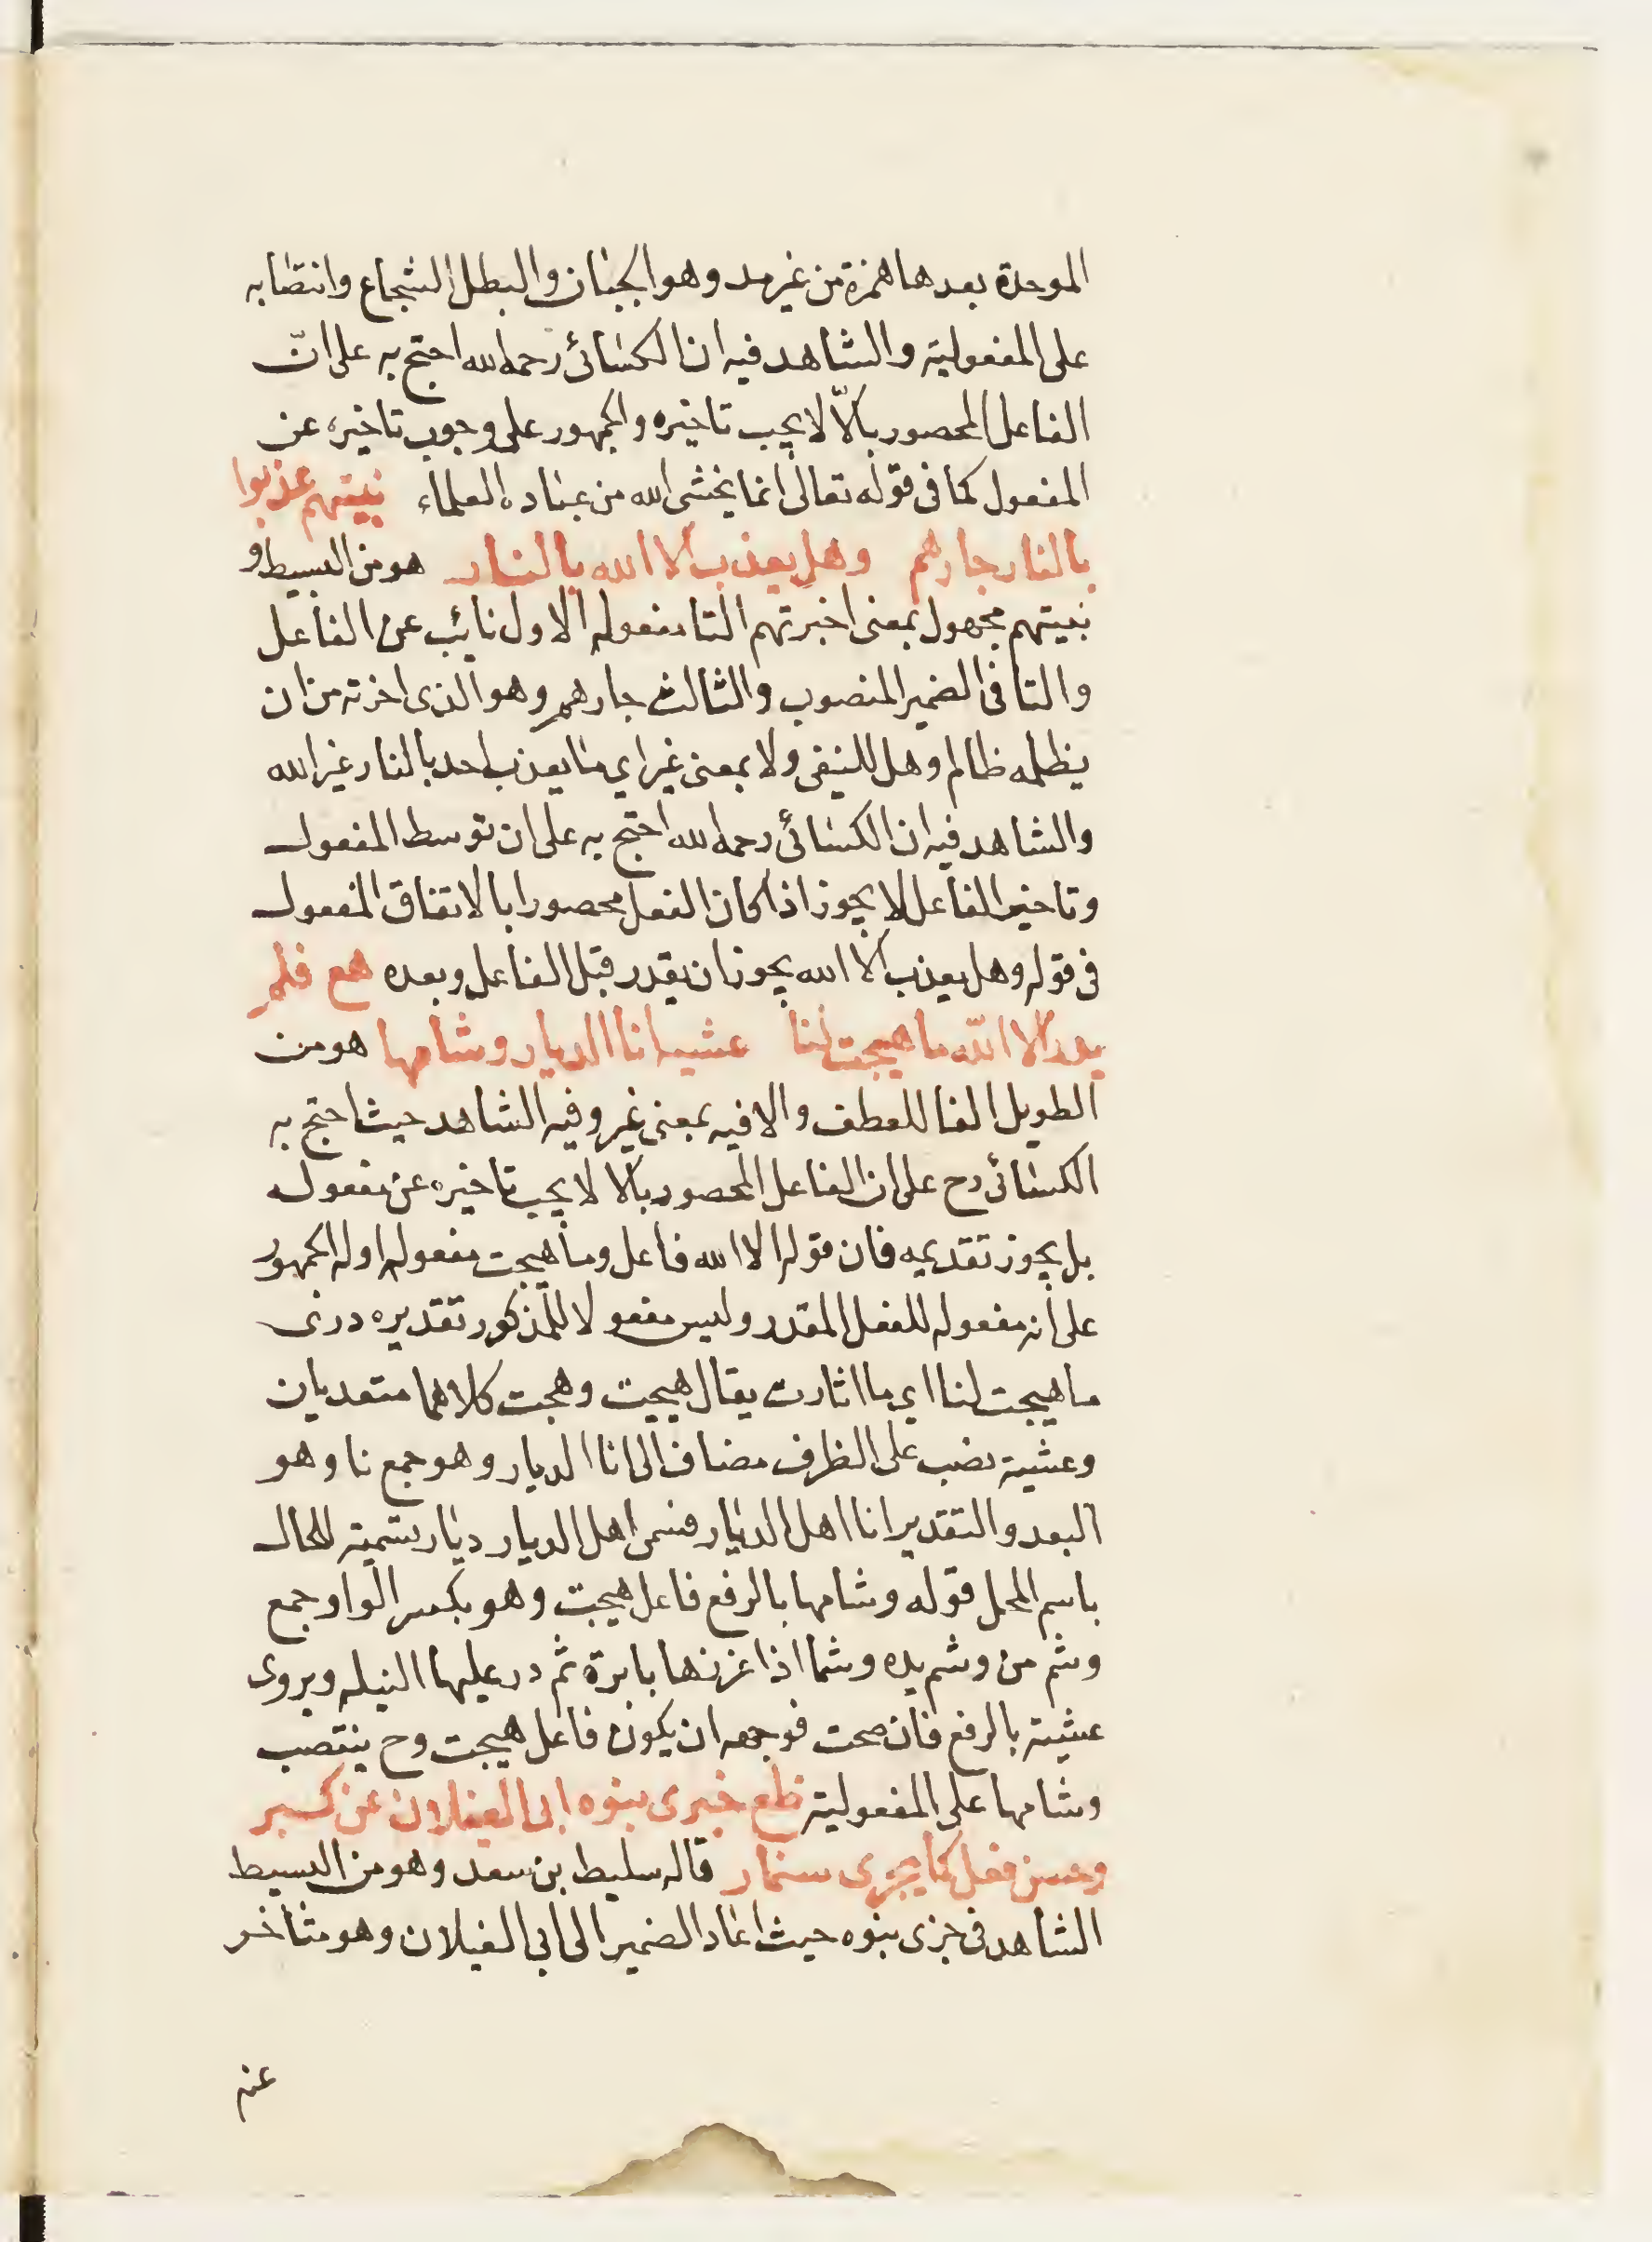 الموحدة بعدها همزة من غير مد وهو الجبان والبطل الشجاع وانتصابه
على المفعولية والشاهد فيه ان الكسائى رحمه الله احتج به على انّ
الفاعل المحصور بالّا لا يجب تاخيره والجمهور على وجوب تاخيره عن
المفعول كما فى قوله تعالى انما يخشى الله من عباده العلماء نبيتهم عذبوا
بالنار جارهم وهل يعذب الا الله بالنار هو من البسيط و
نبيتهم مجهول بمعنى اخبرتهم التا مفعوله الاول نائب عن الفاعل
والثانى الضمير المنصوب والثالث جارهم وهو الذى اخرته من ان
يظلمه ظالم وهل للنفى والا بمعنى غير اي ما يعذب احد بالنار غير الله
والشاهد فيه ان الكسائى رحمه الله احتج به على ان توسط المفعول
وتاخير الفاعل لا يجوز اذا كان الفعل محصورا بالاتفاق المفعول
فى قوله وهل يعذب الا الله يجوز ان يقدر قبل الفاعل وبعده هع فلم
يدر الا الله ما هيجت لنا عشية اناا الديار وشامها هو من
الطويل الفا للعطف والا فيه بمعنى غير وفيه الشاهد حيث احتج به
الكسائى رح على ان الفاعل المحصور بالا لا يجب تاخيره عن مفعوله
بل يجوز تقديمه فان قوله الا الله فاعل وما هيجت مفعوله اوله الجمهور
على انه مفعوله للفعل المقدر وليس مفعولا للمذكور تقديره درى
ما هيجت لنا اي ما اثارت يقال هيجت وهجت كلاهما متعديان
وعشية نصب على الظرف مضاف الى اناا الديار وهو جمع نا وهو
البعد والتقدير اناا اهل الديار فسمى اهل الديار ديار تسمية للحال
باسم المحل قوله وشامها بالرفع فاعل هيجت وهو بكسر الواو جمع
وشم من وشم يده وشما اذا غرزها بابرة ثم در عليها النيله ويروى
عشية بالرفع فان صحت فوجهه ان يكون فاعل هيجت وح ينتصب
وشامها على المفعولية ظع جزى بنوه ابى الغيلان عن كبر
وحسن فعل كما يجزى سنمار قاله سليط بن سعد وهو من البسيط
الشاهد فى جزى بنوه حيث اعاد الضمير الى ابى الغيلان وهو متأخر
عنه